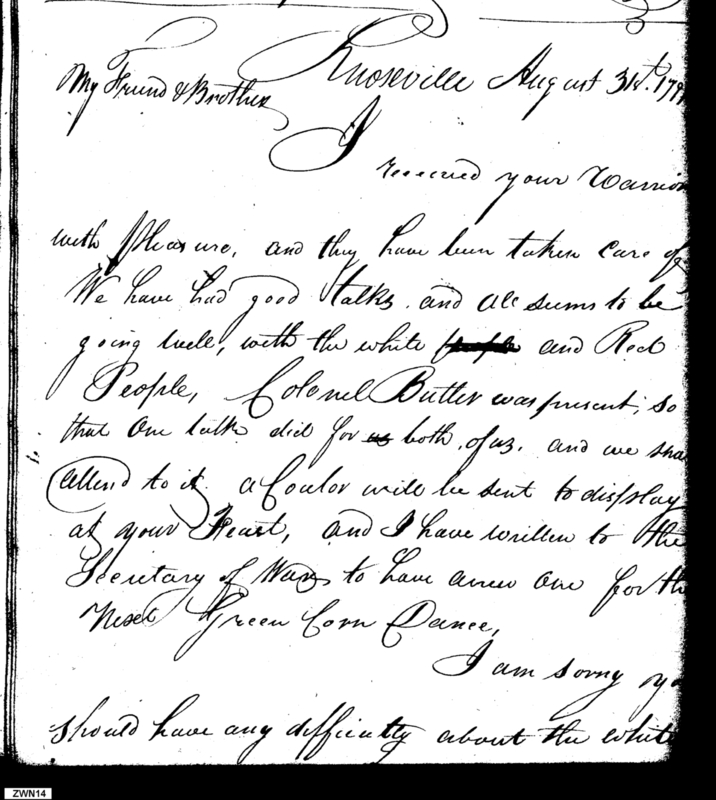 Knoxville August 31st. 179
My Friend & Brother
I
received your Warrior
with pleasure, and they have been taken care of
We have had good talks. and all seems to be
going well, with the white people and Red
People, Colonel Butler was present, so
that one talk did for us both of us. and we sha
attend to it a Coulor will be sent to display
at your Feast, and I have written to the
Secretary of War, to have a new one for th
Next Green Corn Dance,
I am sorry yo
should have any difficulty about the white
ZWN14